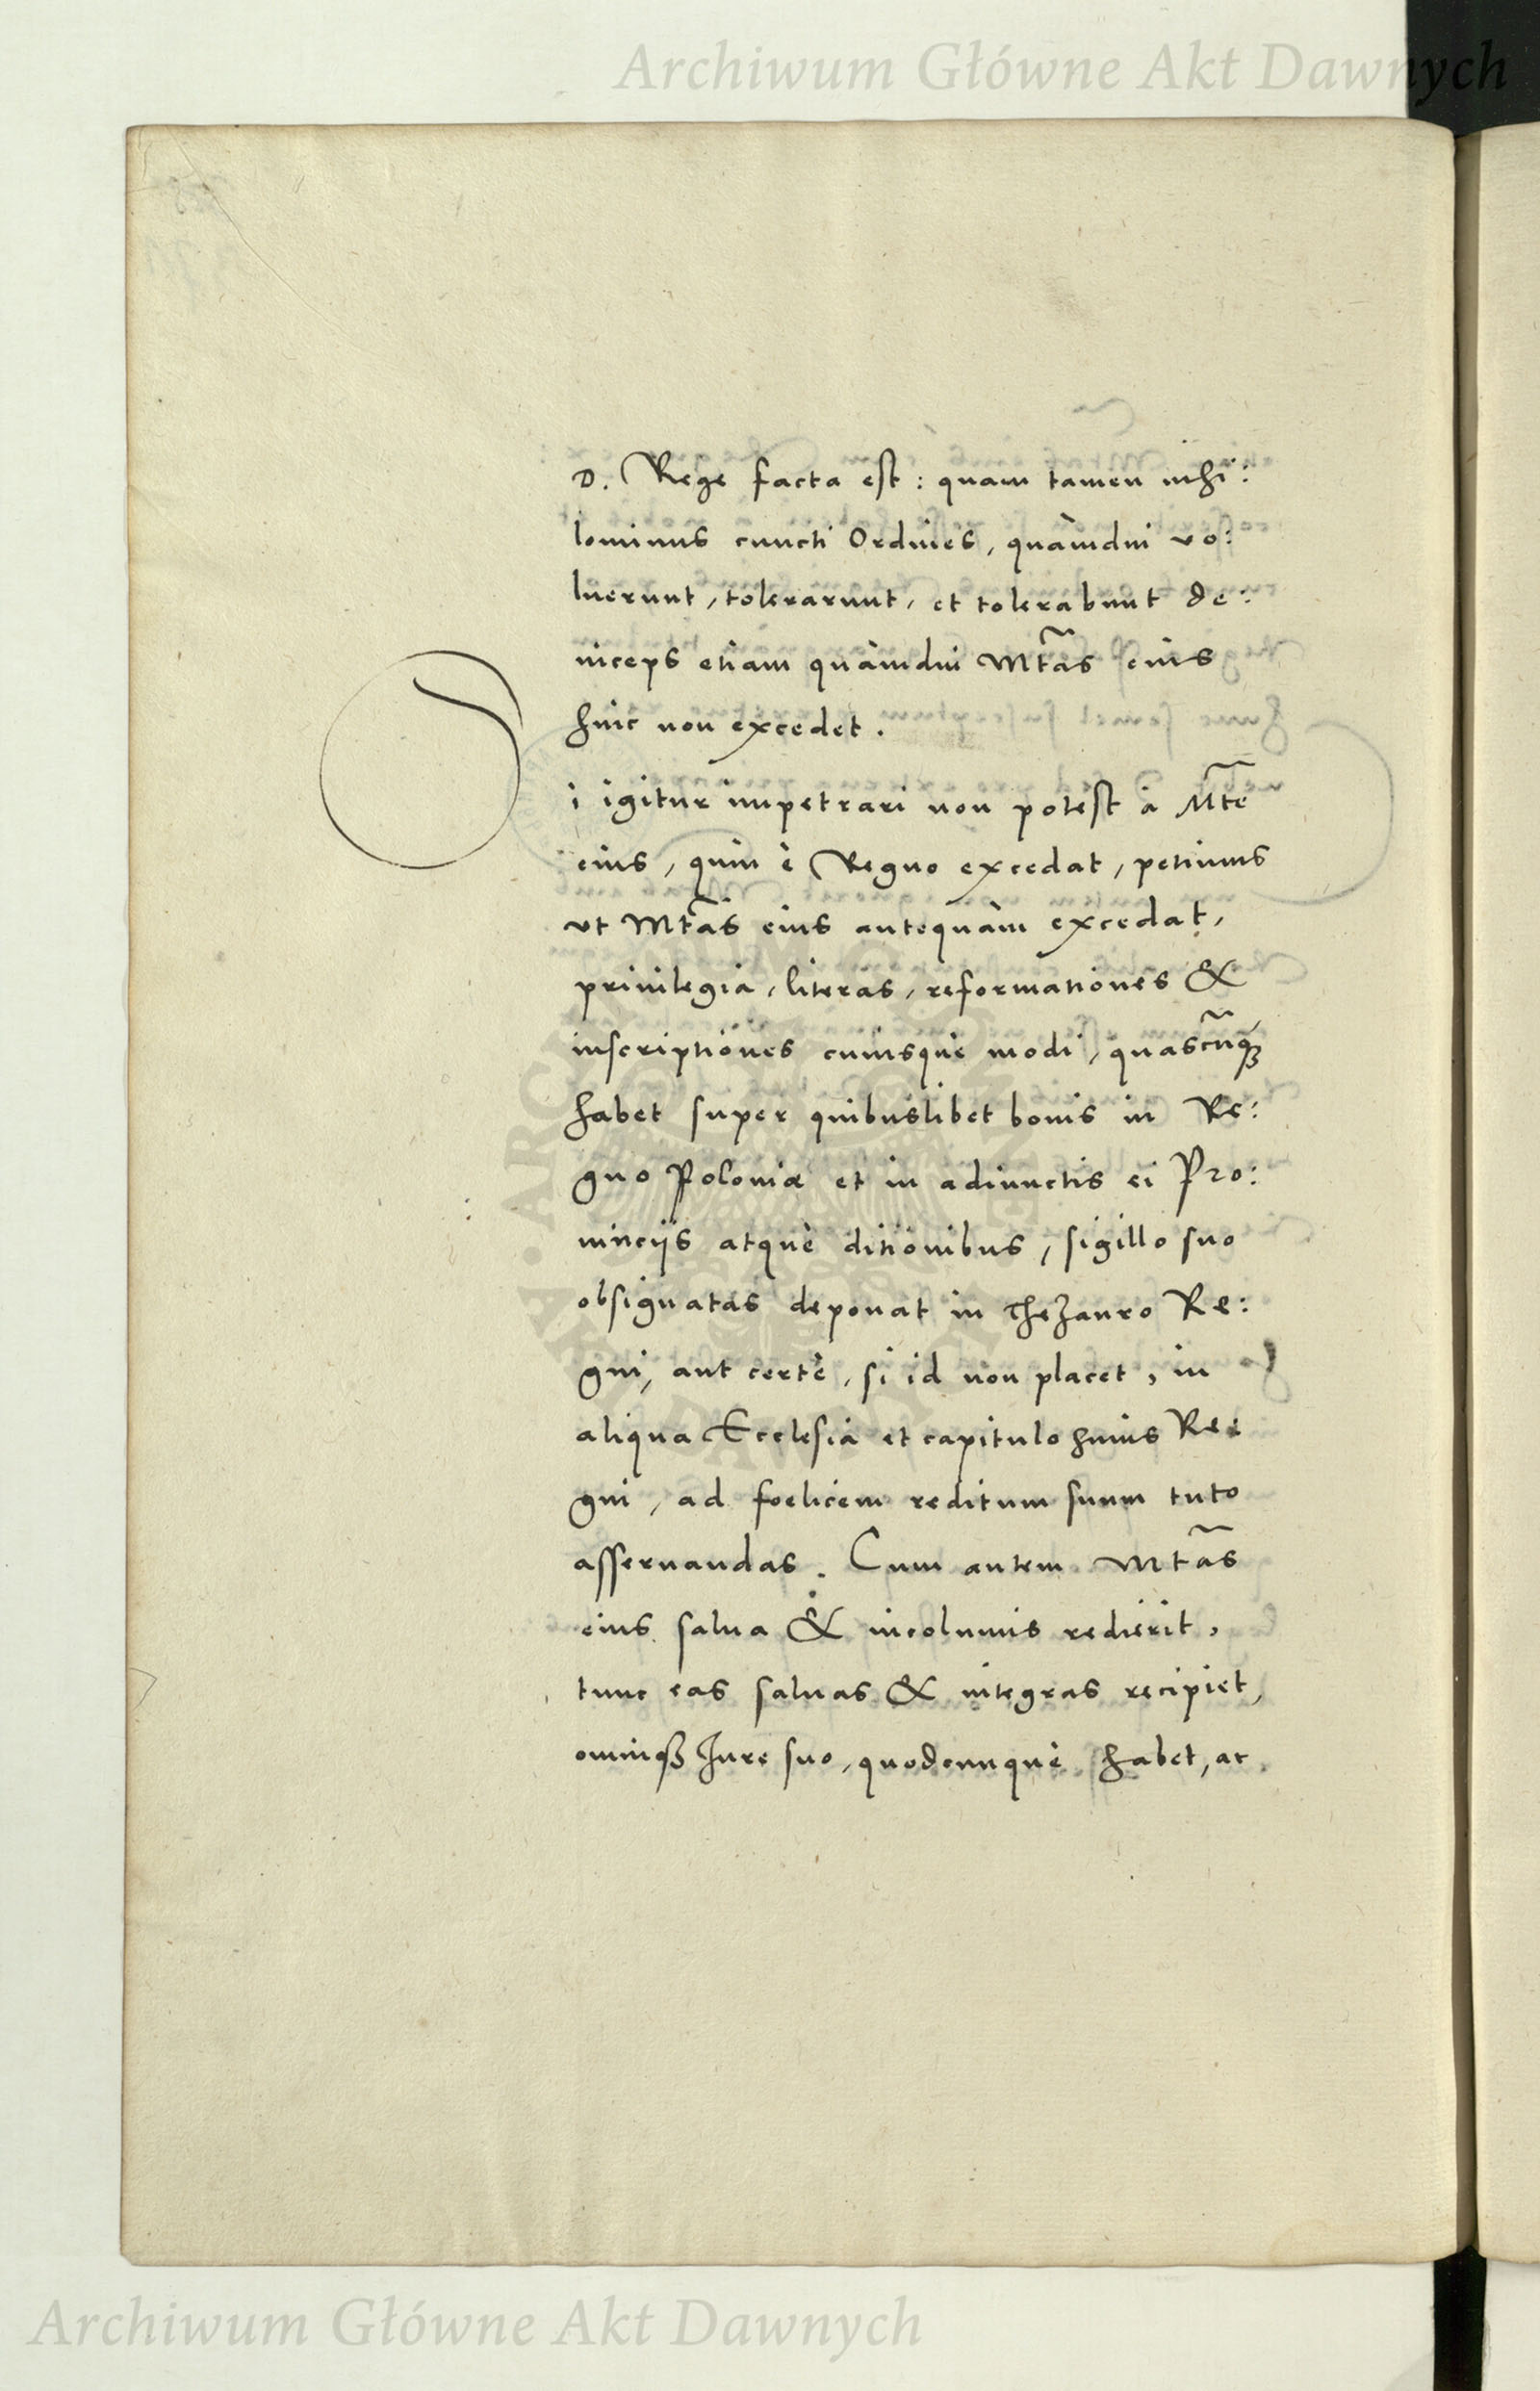 Archiwum Główne Akt Dawnych
D. Rege facta est : quam tamen nihi:
lominus cuncti Ordines, quàmdiu vo:
luerunt, tolerarunt, et tolerabunt de:
inceps etiam quàmdiu Mtãs eius
hinc non excedet.
Si igitur impetrari non potest à Mtẽ
eius, quin è Regno excedat, petimus
vt Mtãs eius antequàm excedat,
priuilegia, literas, reformationes &
inscriptiones cuiusquè modi, quascũqꝫ
habet super quibuslibet bonis in Re:
gno Poloniæ et in adiunctis ei Pro:
uincijs atquè ditionibus, sigillo suo
obsignatas deponat in Thezauro Re:
gni, aut certè, si id non placet, in
aliqua Ecclesia et capitulo huius Re:
gni, ad foelicem reditum suum tuto
asseruandas. Cum autem Mtãs
eius salua & incolumis redierit,
tunc eas saluas & integras recipiet,
omniqꝫ Iure suo, quodcunquè habet, ac
Archiwum Główne Akt Dawnych